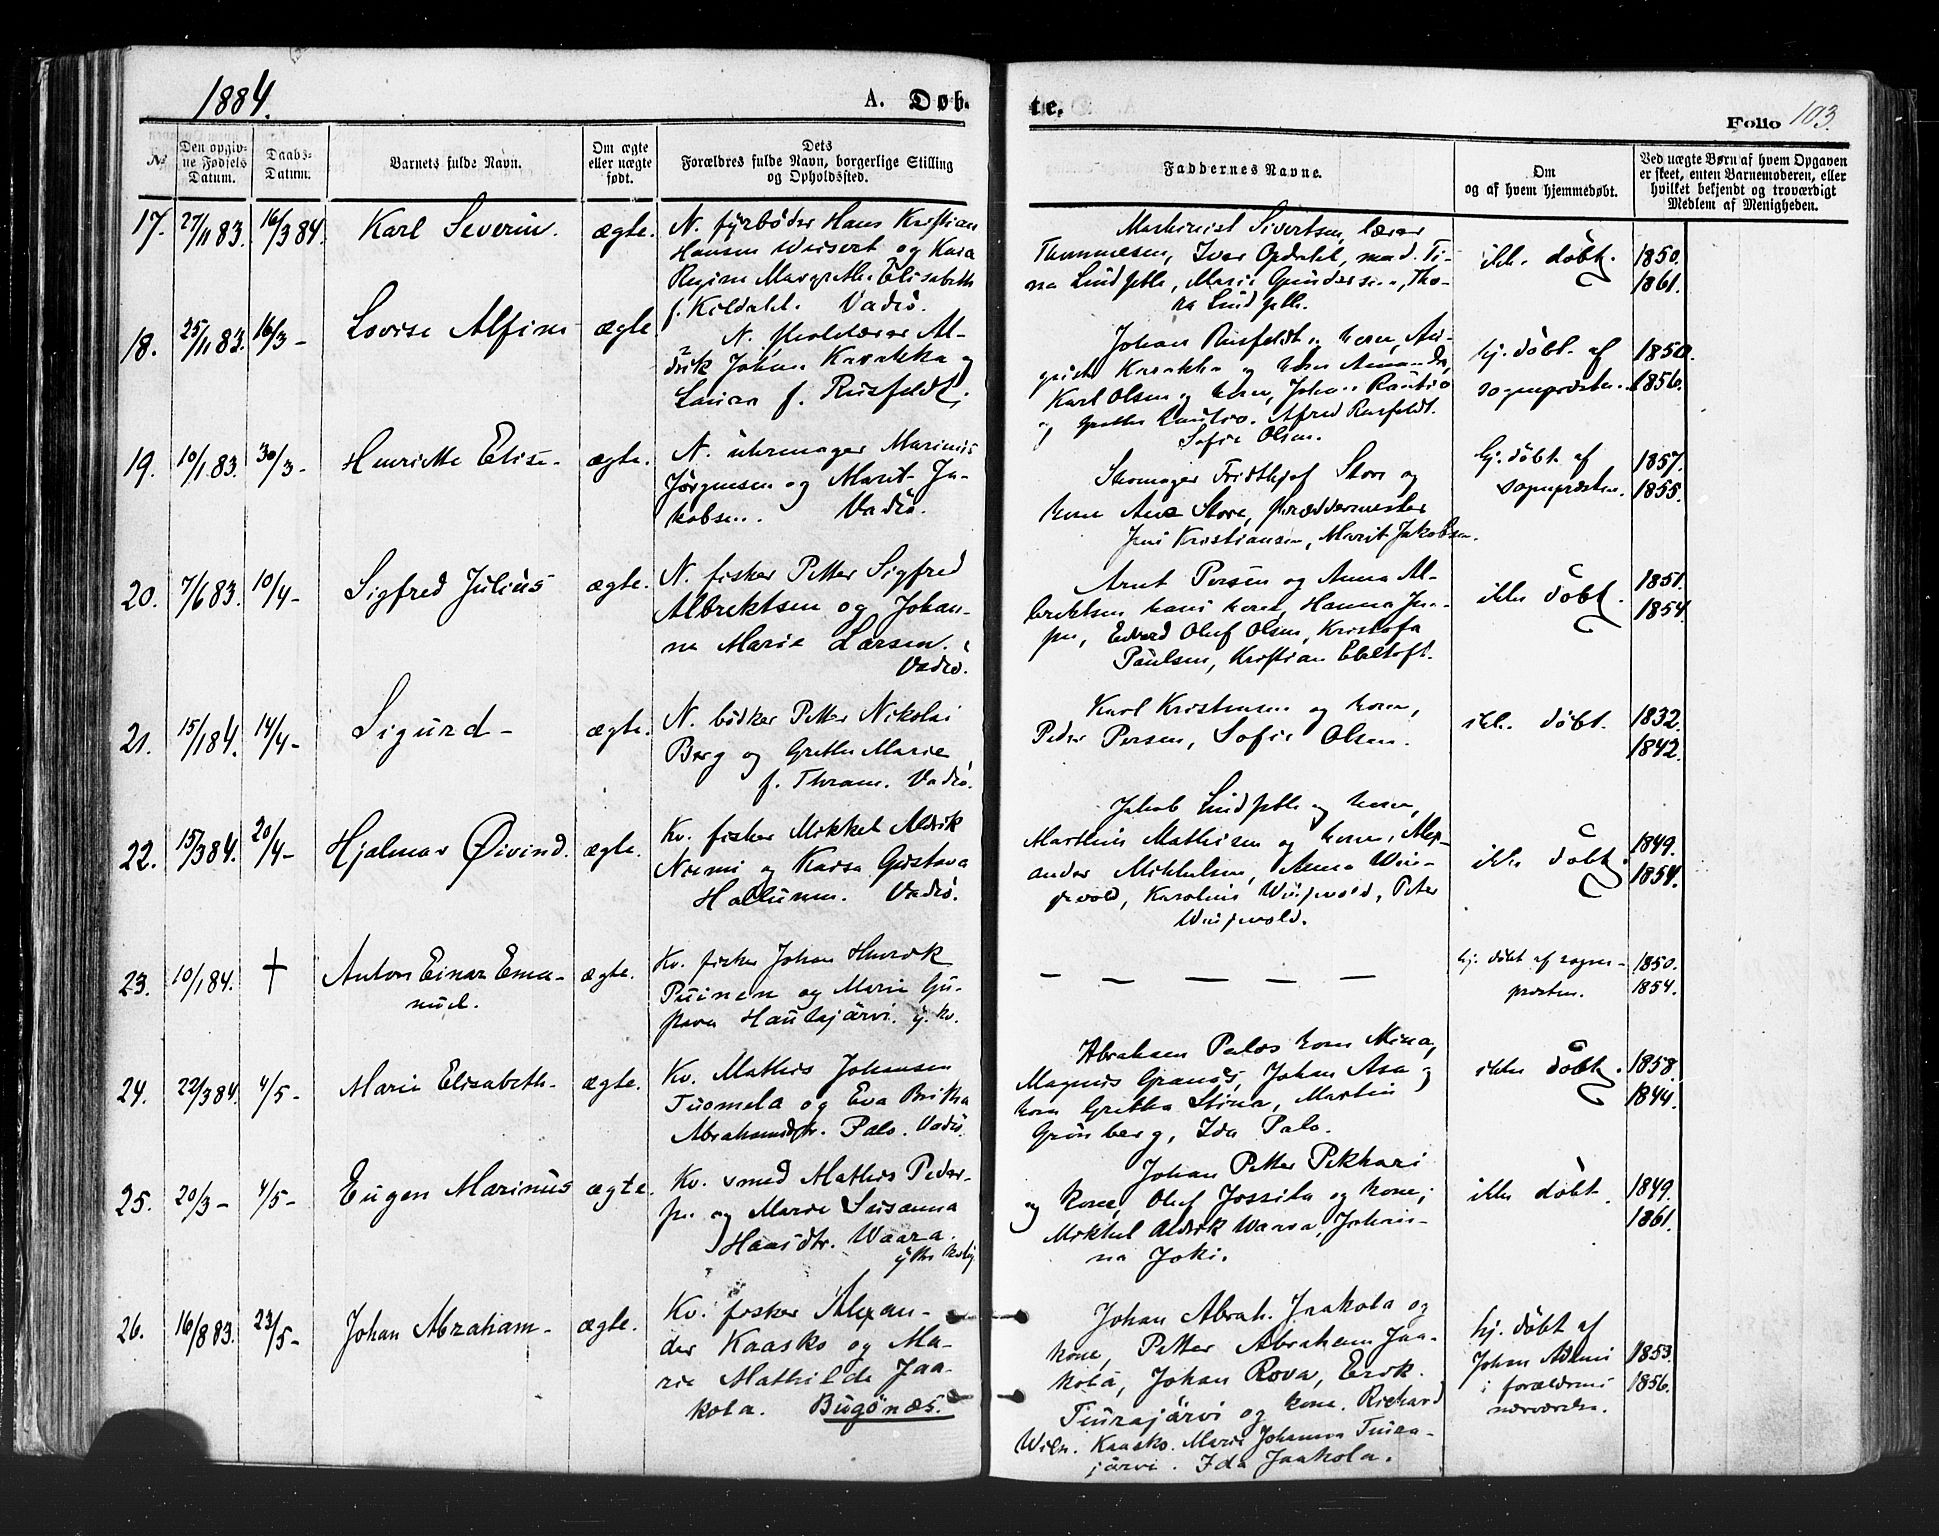 1884.
A. Døb-
te.
Folio 103.
№
Den opgiv-
ne Fødsels
Datum.
Daabs-
Datum.
Barnets fulde Navn.
Om ægte
eller uægte
født.
Dets
Forældres fulde Navn, borgerlige Stilling
og Opholdssted.
Faddernes Navne.
Om
og af hvem hjemmedøbt.
Ved uægte Børn af hvem Opgaven
er skeet, enten Barnemoderen, eller
hvilket bekjendt og troværdigt
Medlem af Menigheden.
17. 27/11 83. 16/3 84. Karl Severin. ægte.
N. fyrbøder Hans Kristian
Hansen Weisert og Kara
Regine Margrethe Elisabeth
f. Kildahl. Vadsö.
Maskinist Sivertsen, lærer
Thommesen, Ivar Opdahl, mad. Ti-
na Lindseth, Marie Gundersen, Tho-
ra Lindseth.
ikke döbt.
1850.
1861.
18. 25/11 83. 16/3 - Lovise Alfine ægte
N. skolelærer Al-
drik Johan Karakka og
Laura f. Rusfeldt.
Johan Rusfeldt og kone, Au-
gusta Karakka og kone Amanda,
Karl Olsen og kone, Johan Rautio
og Grethe Rautio. Alfred Rusfeldt.
Sofie Olsen.
hj. döbt af
sognepræsten.
1850.
1856.
19. 10/1 83. 30/3 - Henriette Elise - ægte.
N. uhrmager Marinus
Jörgensen og Marit Ja-
kobsen. Vadsö.
Skomager Fridthjof Store og
kone Ane Store, skræddermester
Jens Kristiansen, Marit Jakobsen.
hj. döbt af
sognepræsten.
1857.
1855.
20. 7/6 83. 10/4 - Sigfred Julius ægte.
N. fisker Petter Sigfred
Albrektsen og Johan-
ne Marie Larsen.
Vadsö.
Arnt Persen og Anna Al-
brektsen hans kone, Hanna Jep-
sen, Edvard Oluf Olsen, Kristofa
Paulsen, Kristian Ebeltoft.
ikke döbt.
1851.
1854.
21. 15/1 84. 14/4 - Sigurd - ægte.
N. bödker Petter Nikolai
Berg og Grethe Marie
f. Thram. Vadsö.
Karl Kristensen og kone,
Peder Persen, Sofie Olsen.
ikke döbt.
1832.
1842.
22. 15/3 84. 20/4 - Hjalmar Øivind. ægte.
Kv. fisker Mikkel Aldrik
Niemi og Kaisa Gustava
Halluum. Vadsö.
Jakob Lindseth og kone,
Marthin Mathisen og kone, Alex-
ander Mikkelsen, Anna Win-
gevold, Karolius Wingevold, Peter
Wingevold.
ikke döbt.
1849.
1854.
23. 10/1 84. † Anton Einar Ema-
nuel. ægte.
Kv. fisker Johan Henrik
Puinen og Marie Gu-
stava Hautajärvi. y. kv.
— — — — —
hj. döbt af sogne-
præsten.
1850.
1854.
24. 22/3 84. 4/5 - Marie Elisabeth - ægte.
Kv. Mathis Johansen
Tuomela og Eva Brita
Abrahamsdtr. Palo. Vadsö.
Abraham Palos kone Mina,
Magnus Granås, Johan Asa og
kone Gretha Stina, Martin
Grönberg, Ida Palo.
ikke döbt.
1858.
1844.
25. 20/3 - 4/5 - Eugen Marinus ægte.
Kv. smed Mathis Peder-
sen og Marie Susanna
Hansdtr. Waara.
ytre kvby.
Johan Petter Pekkari
og kone, Oluf Jossila og kone,
Mikkel Aldrik Waara, Johan-
na Joki.
ikke döbt.
1849.
1861.
26. 16/8 83. 23/5 - Johan Abraham - ægte.
Kv. fisker Alexan-
der Kaasko og Ma-
rie Mathilde Jaa-
kola. Bugönæs.
Johan Abrah. Jaakola og
kone, Petter Abraham Jaa-
kola, Johan Rova, Erik
Tiurajärvi og kone, Richard
Wilh. Kaasko. Marie Johanna Tiura-
järvi. Ida Jaakola.
hj. döbt af
Johan Adami
i forældrenes
nærværelse.
1853.
1856.